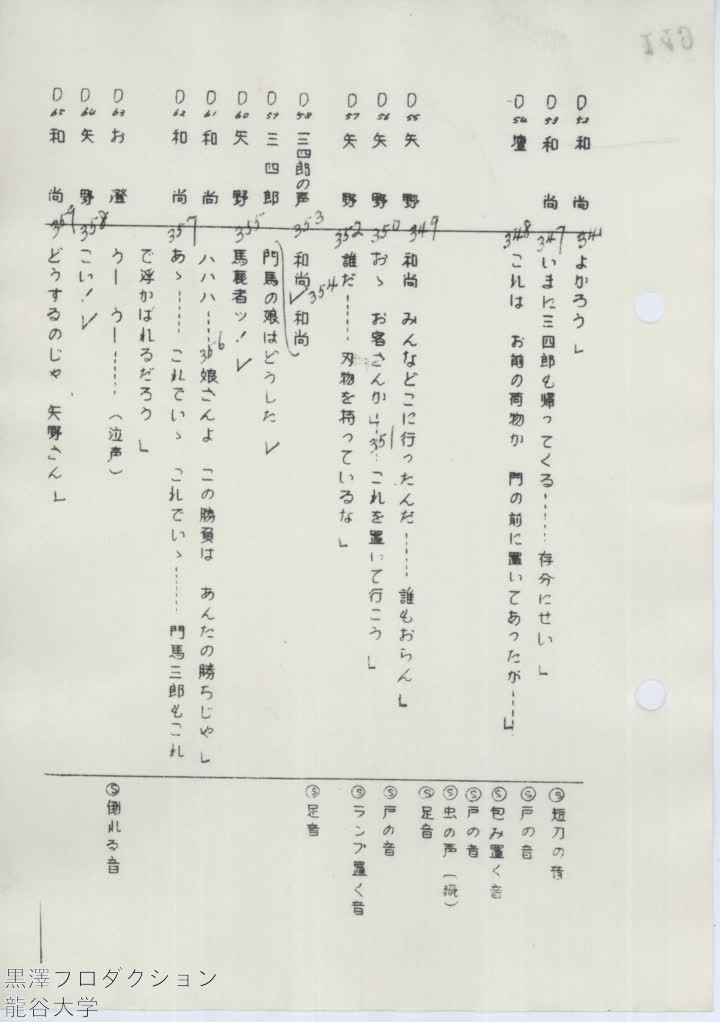 D52 和尚 346 よかろう」
D53 和尚 347 いまに三四郎も帰ってくる……… 存分にせい」
D54 壇 348 これは お前の荷物か 門の前に置いてあったが……」
D55 矢野 349 和尚 みんなどこに行ったんだ……… 誰もおらん」
D56 矢野 350 おゝ お客さんか 351 これを置いて行こう」
D57 矢野 352 誰だ……… 刃物を持っているな」
D58 三四郎の声 353 和尚 354 和尚
D59 三四郎 門馬の娘はどうした
D60 矢野 355 馬鹿者ッ!
D61 和尚 ハハハ……… 356 娘さんよ この勝負は あんたの勝ちじゃ」
D62 和尚 357 あゝ……… これでいゝ これでいゝ……… 門馬三郎もこれ
で浮かばれるだろう」
D63 お澄 うー うー……… (泣声)
D64 矢野 358 こい!
D65 和尚 359 どうするのじゃ 矢野さん」
Ⓢ 短刀の音
Ⓢ 戸の音
Ⓢ 包み置く音
Ⓢ 戸の音
Ⓢ 虫の声(続)
Ⓢ 足音
Ⓢ 戸の音
Ⓢ ランプ置く音
Ⓢ 足音
Ⓢ 倒れる音
黒澤フロダクション
龍谷大学